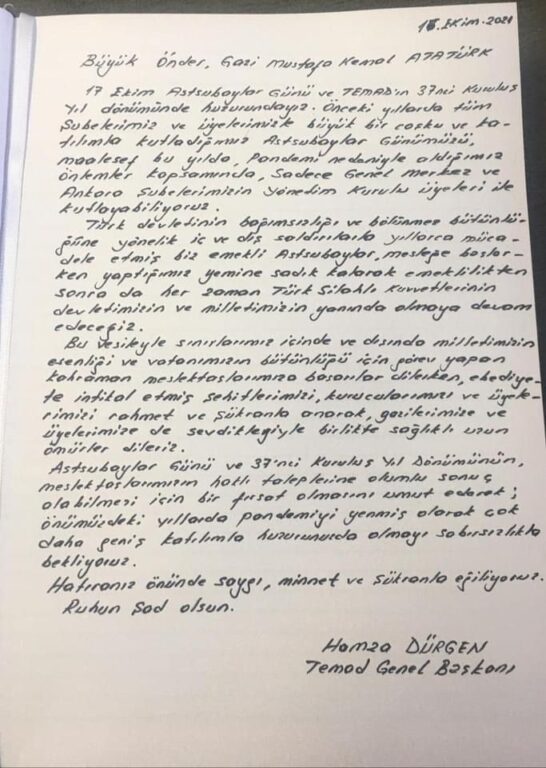 15.Ekim.2021
Büyük Önder, Gazi Mustafa Kemal ATATÜRK
17 Ekim Astsubaylar Günü ve TEMAD'ın 37nci Kuruluş
Yıl dönümünde huzurundayız. Önceki yıllarda tüm
Şubelerimiz ve üyelerimizle büyük bir coşku ve ka-
tılımla kutladığımız Astsubaylar Günümüzü,
maalesef bu yılda, Pandemi nedeniyle aldığımız
önlemler kapsamında, Sadece Genel merkez ve
Ankara Şubelerimizin Yönetim Kurulu üyeleri ile
kutlayabiliyoruz.
Türk devletinin bağımsızlığı ve bölünmez bütünlü-
ğüne yönelik iç ve dış saldırılarla yıllarca müca-
dele etmiş biz emekli Astsubaylar, mesleğe başlar-
ken yaptığımız yemine sadık kalarak emeklilikten
sonra da her zaman Türk Silahlı Kuvvetlerinin
devletimizin ve milletimizin yanında olmaya devam
edeceğiz.
Bu vesileyle sınırlarımız içinde ve dışında milletimizin
esenliği ve vatanımızın bütünlüğü için görev yapan
kahraman meslektaşlarımıza başarılar dilerken, ebediye-
te intikal etmiş şehitlerimizi, kurucularımızı ve üyele-
rimizi rahmet ve şükranla anarak, gazilerimize ve
üyelerimize de sevdikleriyle birlikte sağlıklı uzun
ömürler dileriz.
Astsubaylar Günü ve 37'nci Kuruluş Yıl Dönümünün,
meslektaşlarımızın haklı taleplerine olumlu sonuç
olabilmesi için bir fırsat olmasını umut ederek;
önümüzdeki yıllarda pandemiyi yenmiş olarak çok
daha geniş katılımla huzurunuzda olmayı sabırsızlıkla
bekliyoruz.
Hatıranız önünde saygı, minnet ve şükranla eğiliyoruz.
Ruhun Şad olsun.
Hamza DÜRGEN
Temad Genel Başkanı